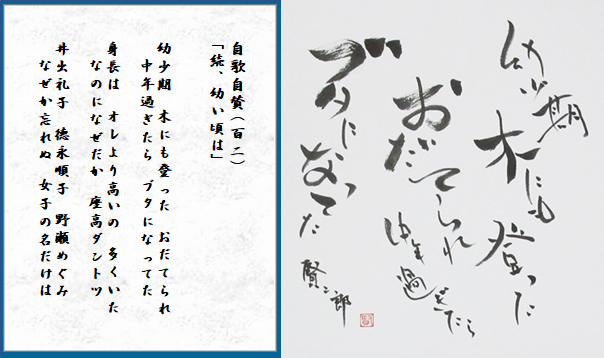 自歌自賛(百二)
「続、幼い頃は」
幼少期 木にも登った おだてられ
中年過ぎたら ブタになってた
身長は オレより高いの 多くいた
なのになぜだか 座高ダントツ
井出礼子 徳永順子 野瀬めぐみ
なぜか忘れぬ 女子の名だけは
幼少期
木にも
登った
おだてられ
中年
過ぎたら
ブタになってた
賢二郎